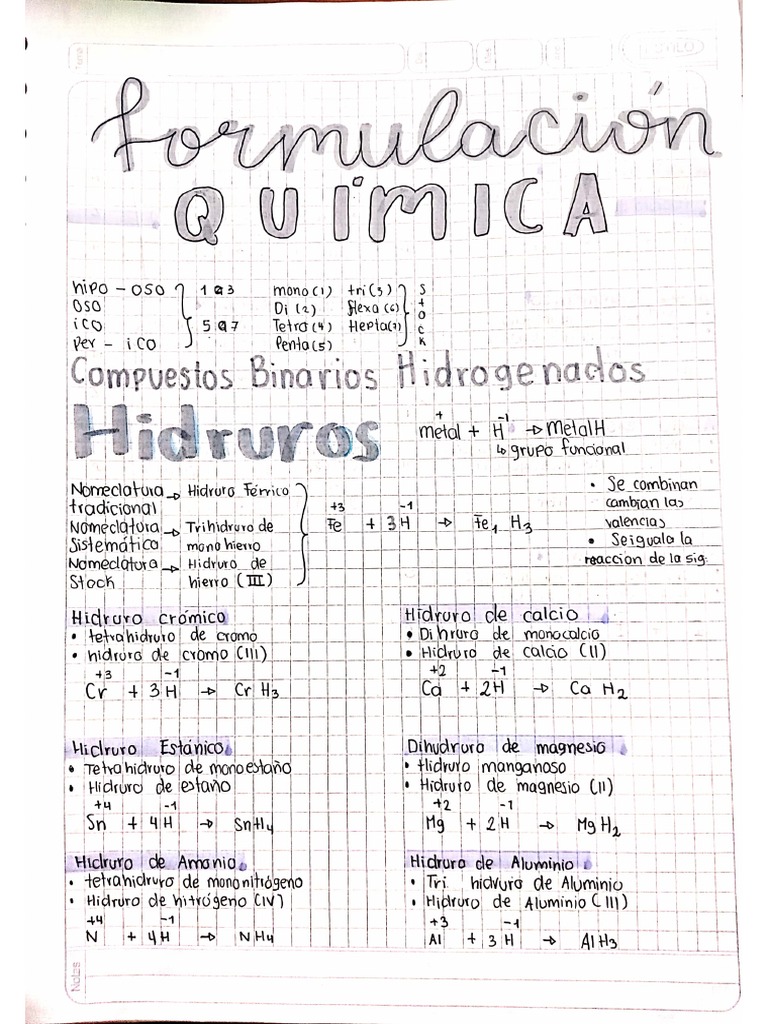 Tema
formulación
QUÍMICA
hipo - oso 1 a 3 mono (1) tri (3) Stock
oso Di (2) Hexa (6)
ico 5 a 7 Tetra (4) Hepta (7)
Per - ico Penta (5)
Compuestos Binarios Hidrogenados
Hidruros
+ -1
metal + H → MetalH
↳ grupo funcional
Nomeclatura → Hidruro Férrico
tradicional
Nomeclatura → Trihidruro de
Sistemática monohierro
Nomeclatura → Hidruro de
Stock hierro (III)
+3 -1
Fe + 3H → Fe₁ H₃
• Se combinan
cambian las
valencias
• Seiguala la
reaccion de la sig.
Hidruro crómico
• tetrahidruro de cromo
• hidruro de cromo (III)
+3 -1
Cr + 3H → CrH₃
Hidruro de calcio
• Dihruro de monocalcio
• Hidruro de calcio (II)
+2 -1
Ca + 2H → Ca H₂
Hidruro Estánico
• Tetrahidruro de monoestaño
• Hidruro de estaño
+4 -1
Sn + 4H → SnH₄
Dihudruro de magnesio
• Hidruro manganoso
• Hidruro de magnesio (II)
+2 -1
Mg + 2H → MgH₂
Hidruro de Amonio
• tetrahidruro de mononitrógeno
• Hidruro de nitrógeno (IV)
+4 -1
N + 4H → NH₄
Hidruro de Aluminio
• Tri hidruro de Aluminio
• Hidruro de Aluminio (III)
+3 -1
Al + 3H → AlH₃
Notas